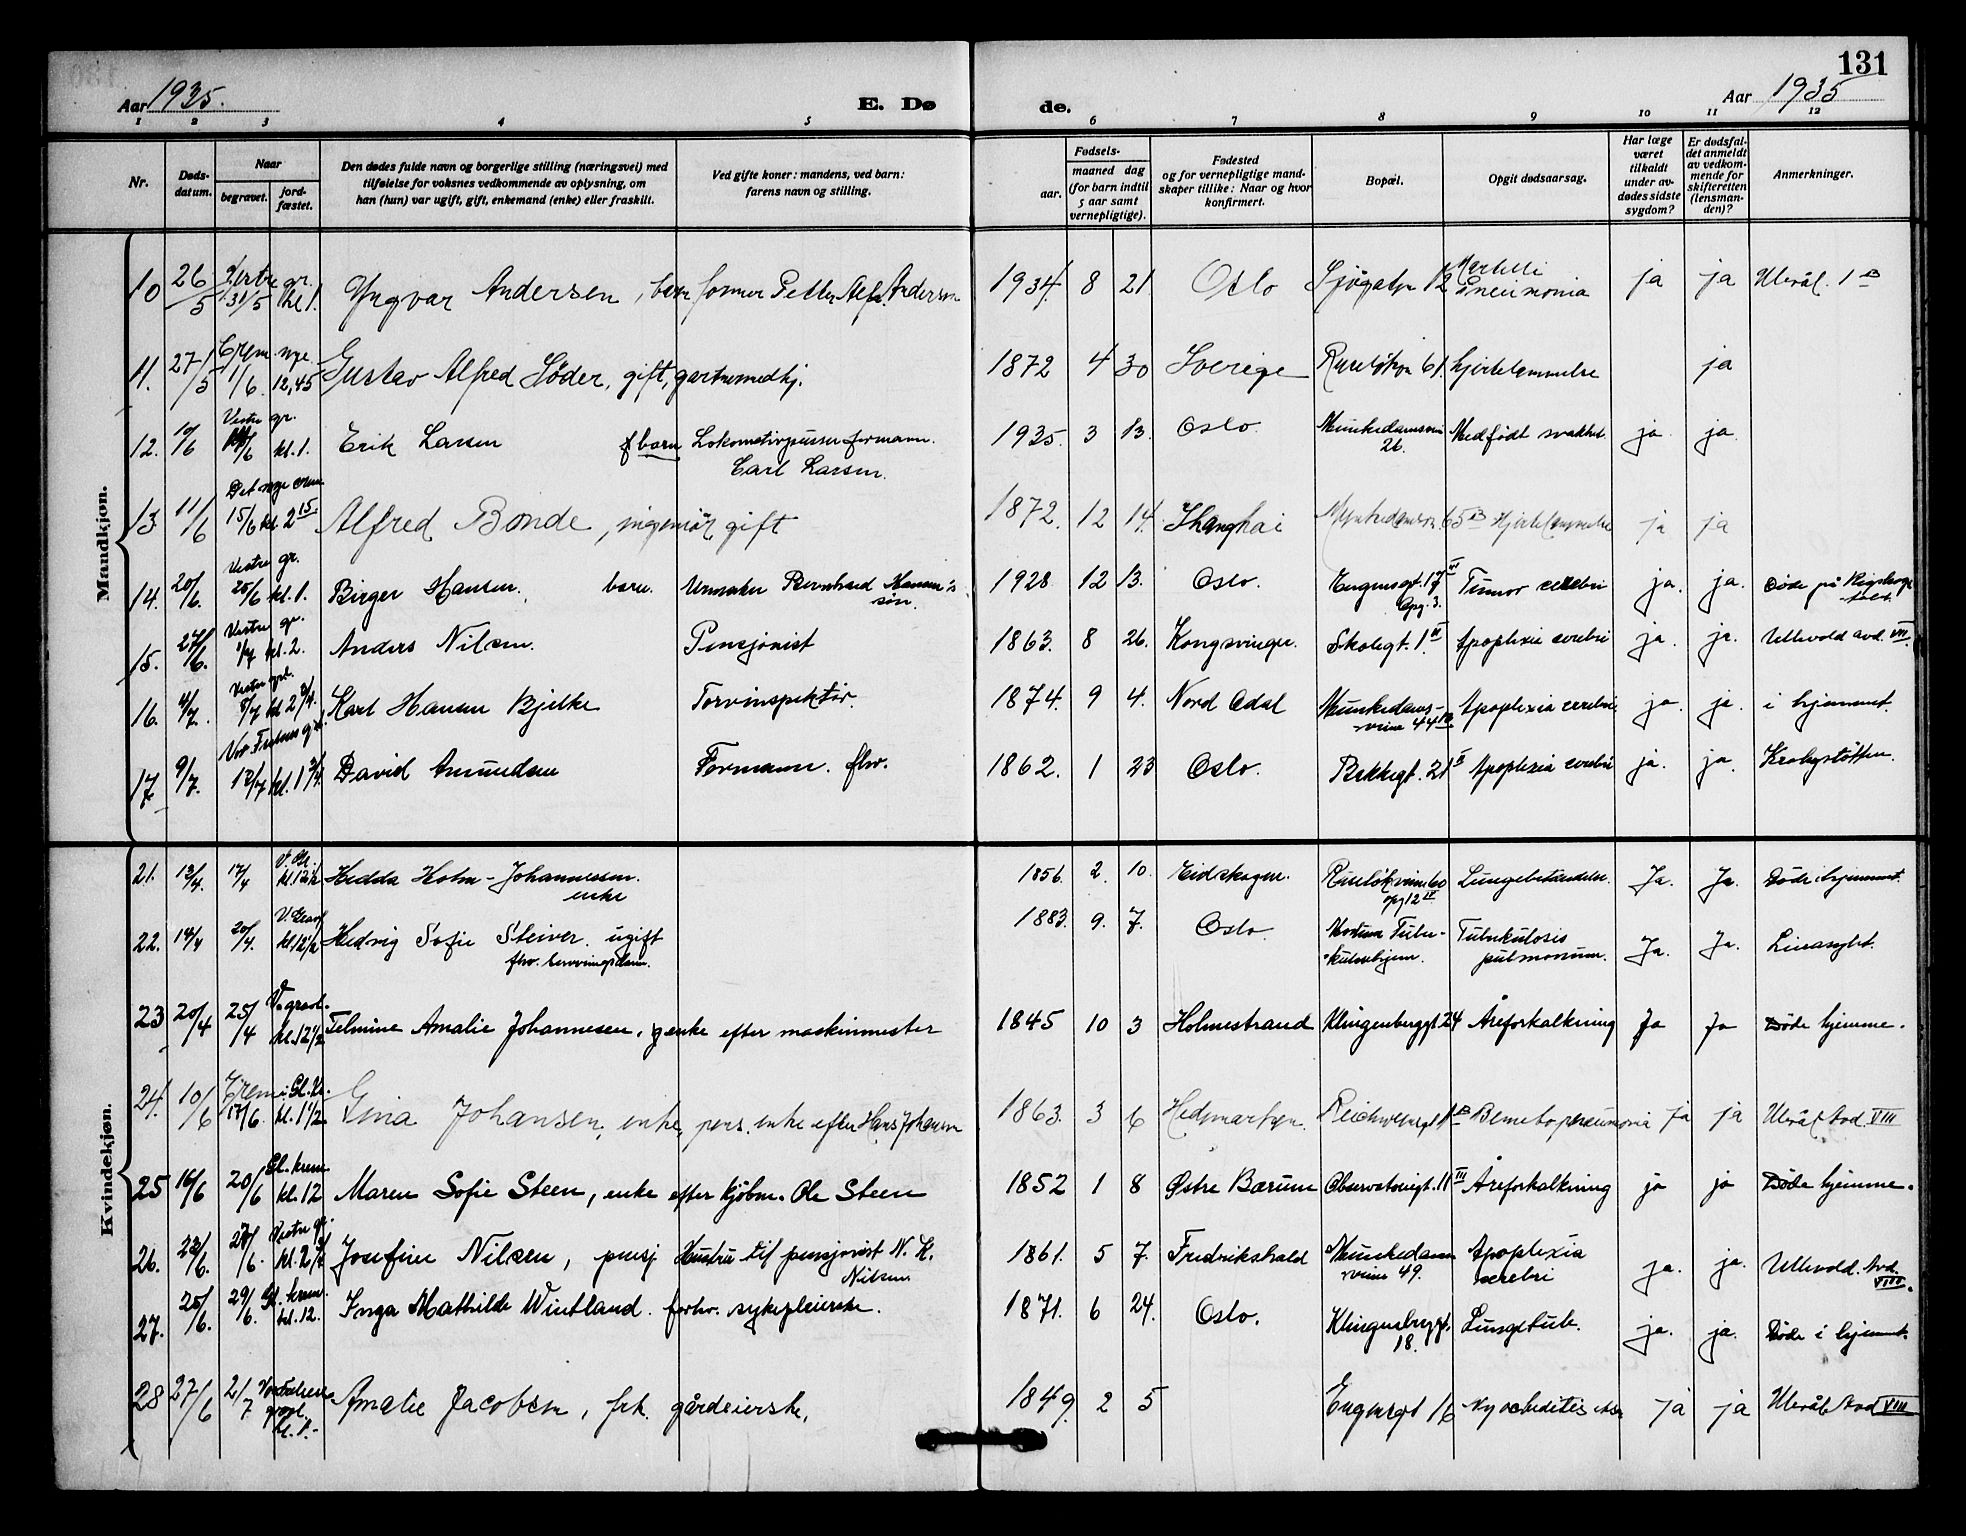 131
Aar 1935. E. Dø de. Aar 1935
1 2 3 4 5 6 7 8 9 10 11 12
Nr. Døds-datum. Naar begravet. jord-fæstet. Den dødes fulde navn og borgerlige stilling (næringsvei) med tilføielse for voksnes vedkommende av oplysning, om han (hun) var ugift, gift, enkemand (enke) eller fraskilt. Ved gifte koner: mandens, ved barn: farens navn og stilling. Fødsels- aar. maaned dag (for barn indtil 5 aar samt vernepligtige). Fødested og for vernepligtige mand-skaper tillike: Naar og hvor konfirmert. Bopæl. Opgit dødsaarsag. Har læge været tilkaldt under av-dødes sidste sygdom? Er dødsfal-det anmeldt av vedkom-mende for skifteretten (lensman-den)? Anmerkninger.
Mandkjøn.
10 26/5 Vestre gr. 31/5 kl 1. Yngvar Andersen, barn Petter Alfr. Andersen 1934 8 21 Oslo Sjøgatn 12 Morbilli Pneumonia ja ja Ulevål. 1 B
11. 27/5 Crem. nye 1/6. 12,45 Gustav Alfred Söder, gift, gartnermedhj. 1872 4 30 Sverige Ruseløkvn 61. hjertelammelse ja
12. 10/6 Vestre gr. kl. 1. Erik Larsen barn Lokomotivpusserformann Carl Larsen. 1935. 3 13. Oslo. Munkedamsvn 26. Medfødt svakhet. ja. ja.
13 11/6 Det nye crem 15/6 kl 2 15. Alfred Bonde, ingeniør gift 1872. 12 14. Shanghai Munkedamsvn. 65 B Hjertelammelse ja ja
14. 20/6. Vestre gr. 25/6 kl. 1. Birger Hansen. barn. Urmaker Bernhard Hansen's søn. 1928 12 13. Oslo. Engensgt. 17 VI Opg. 3. Tumor cerebri ja. ja. Døde på Rigshospitalet.
15. 27/6. Vestre gr. 1/7 kl. 2. Anders Nilsen. Pensjonist 1863. 8 26. Kongsvinger. Skolegt. 1. II Apoplexia cerebri ja. ja. Ullevold avd. VII.
16. 4/7. Vestre grl. 8/7 kl 2 3/4. Karl Hansen Bjelke Torvinspektør. 1874. 9 4. Nord Odal Munkedams-veien 44 III Apoplexia cerebri ja. ja. i hjemmet
17. 9/7. Vor Frelsers gr. 12/7 kl. 1 3/4 David Amundsen Formann. fhv. 1862. 1 23 Oslo. Bekkegt. 21 II Apoplexia cerebri ja. ja. Krohgstøtten.
Kvindekjøn.
21. 13/4. 17/4 V. Gr. kl. 12 1/2 Hedda Holm-Johannessen. enke 1856. 2. 10. Eidskogen. Ruseløkveien 60 opg 12 IV Lungebetændelse. Ja. Ja. Døde i hjemmet.
22. 14/4 20/4. V. Grav kl. 12 1/2 Hedvig Sofie Steiver. ugift fhv. serveringsdame. 1883. 9. 7. Oslo. Tuberkulosehjem. Tuberkulosis pulmonum. Ja. Ja.
23 20/4 25/4 V. gravl. kl. 12 1/2 Telmine Amalie Johannesen, enke efter maskinmester 1845 10 3 Holmestrand Klingenberggt 24 Åreforkalkning Ja Ja Døde hjemme.
24. 10/6 Crem i Gl. Kr. 17/6. kl. 1 1/2 Gina Johansen, enke, pens. enke efter Hans Johansen 1863. 3 6 Hedmarken. Reichweinsgt 1 B ja ja Ulevål Avd. VIII
25 16/6 20/6 Gl. krem kl. 12 Maren Sofie Steen, enke efter kjøbm. Ole Steen 1852 1 8 Østre Bærum Observatoriegt. 11 III Åreforkalkning ja ja Døde hjemme.
26. 23/6. 27/6. Vestre gr. kl. 2 3/4 Josefine Nilsen, pensj Hustru til pensjonist N. K. Nilsen. 1861. 5 7. Fredrikshald Munkedamsveien 49. Apoplexia cerebri ja. ja. Ullevold. Avd. VIII.
27. 25/6. 29/6. Gl. krem. kl. 12. Inga Mathilde Wintland. forhv. sykepleierske. 1871. 6 24. Oslo. Klingenberggt. 18. Lungetub. ja. ja. Døde i hjemmet.
28 27/6 2/7 Vor Frelsers gravl. kl. 1.- Amalie Jacobsen, frk. gårdeierske, 1849. 2 5 Engensgt 16 ja ja Ulevål Avd VIII